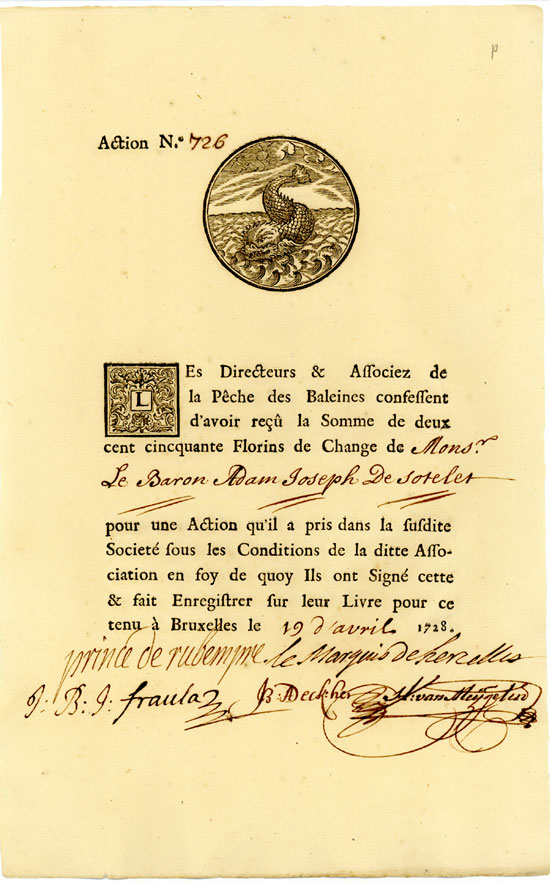 p
Action N.º 726
LEs Directeurs & Aſſociez de
la Pêche des Baleines confeſſent
d'avoir reçû la Somme de deux
cent cincquante Florins de Change de Mons.r
Le Baron Adam Joseph De Sotelet
pour une Action qu'il a pris dans la ſuſdite
Societé ſous les Conditions de la ditte Aſſo-
ciation en foy de quoy Ils ont Signé cette
& fait Enregiſtrer ſur leur Livre pour ce
tenu à Bruxelles le 19 d'avril 1728.
prince de rubempre le Marquis de herzelles
J: B: J: fraula